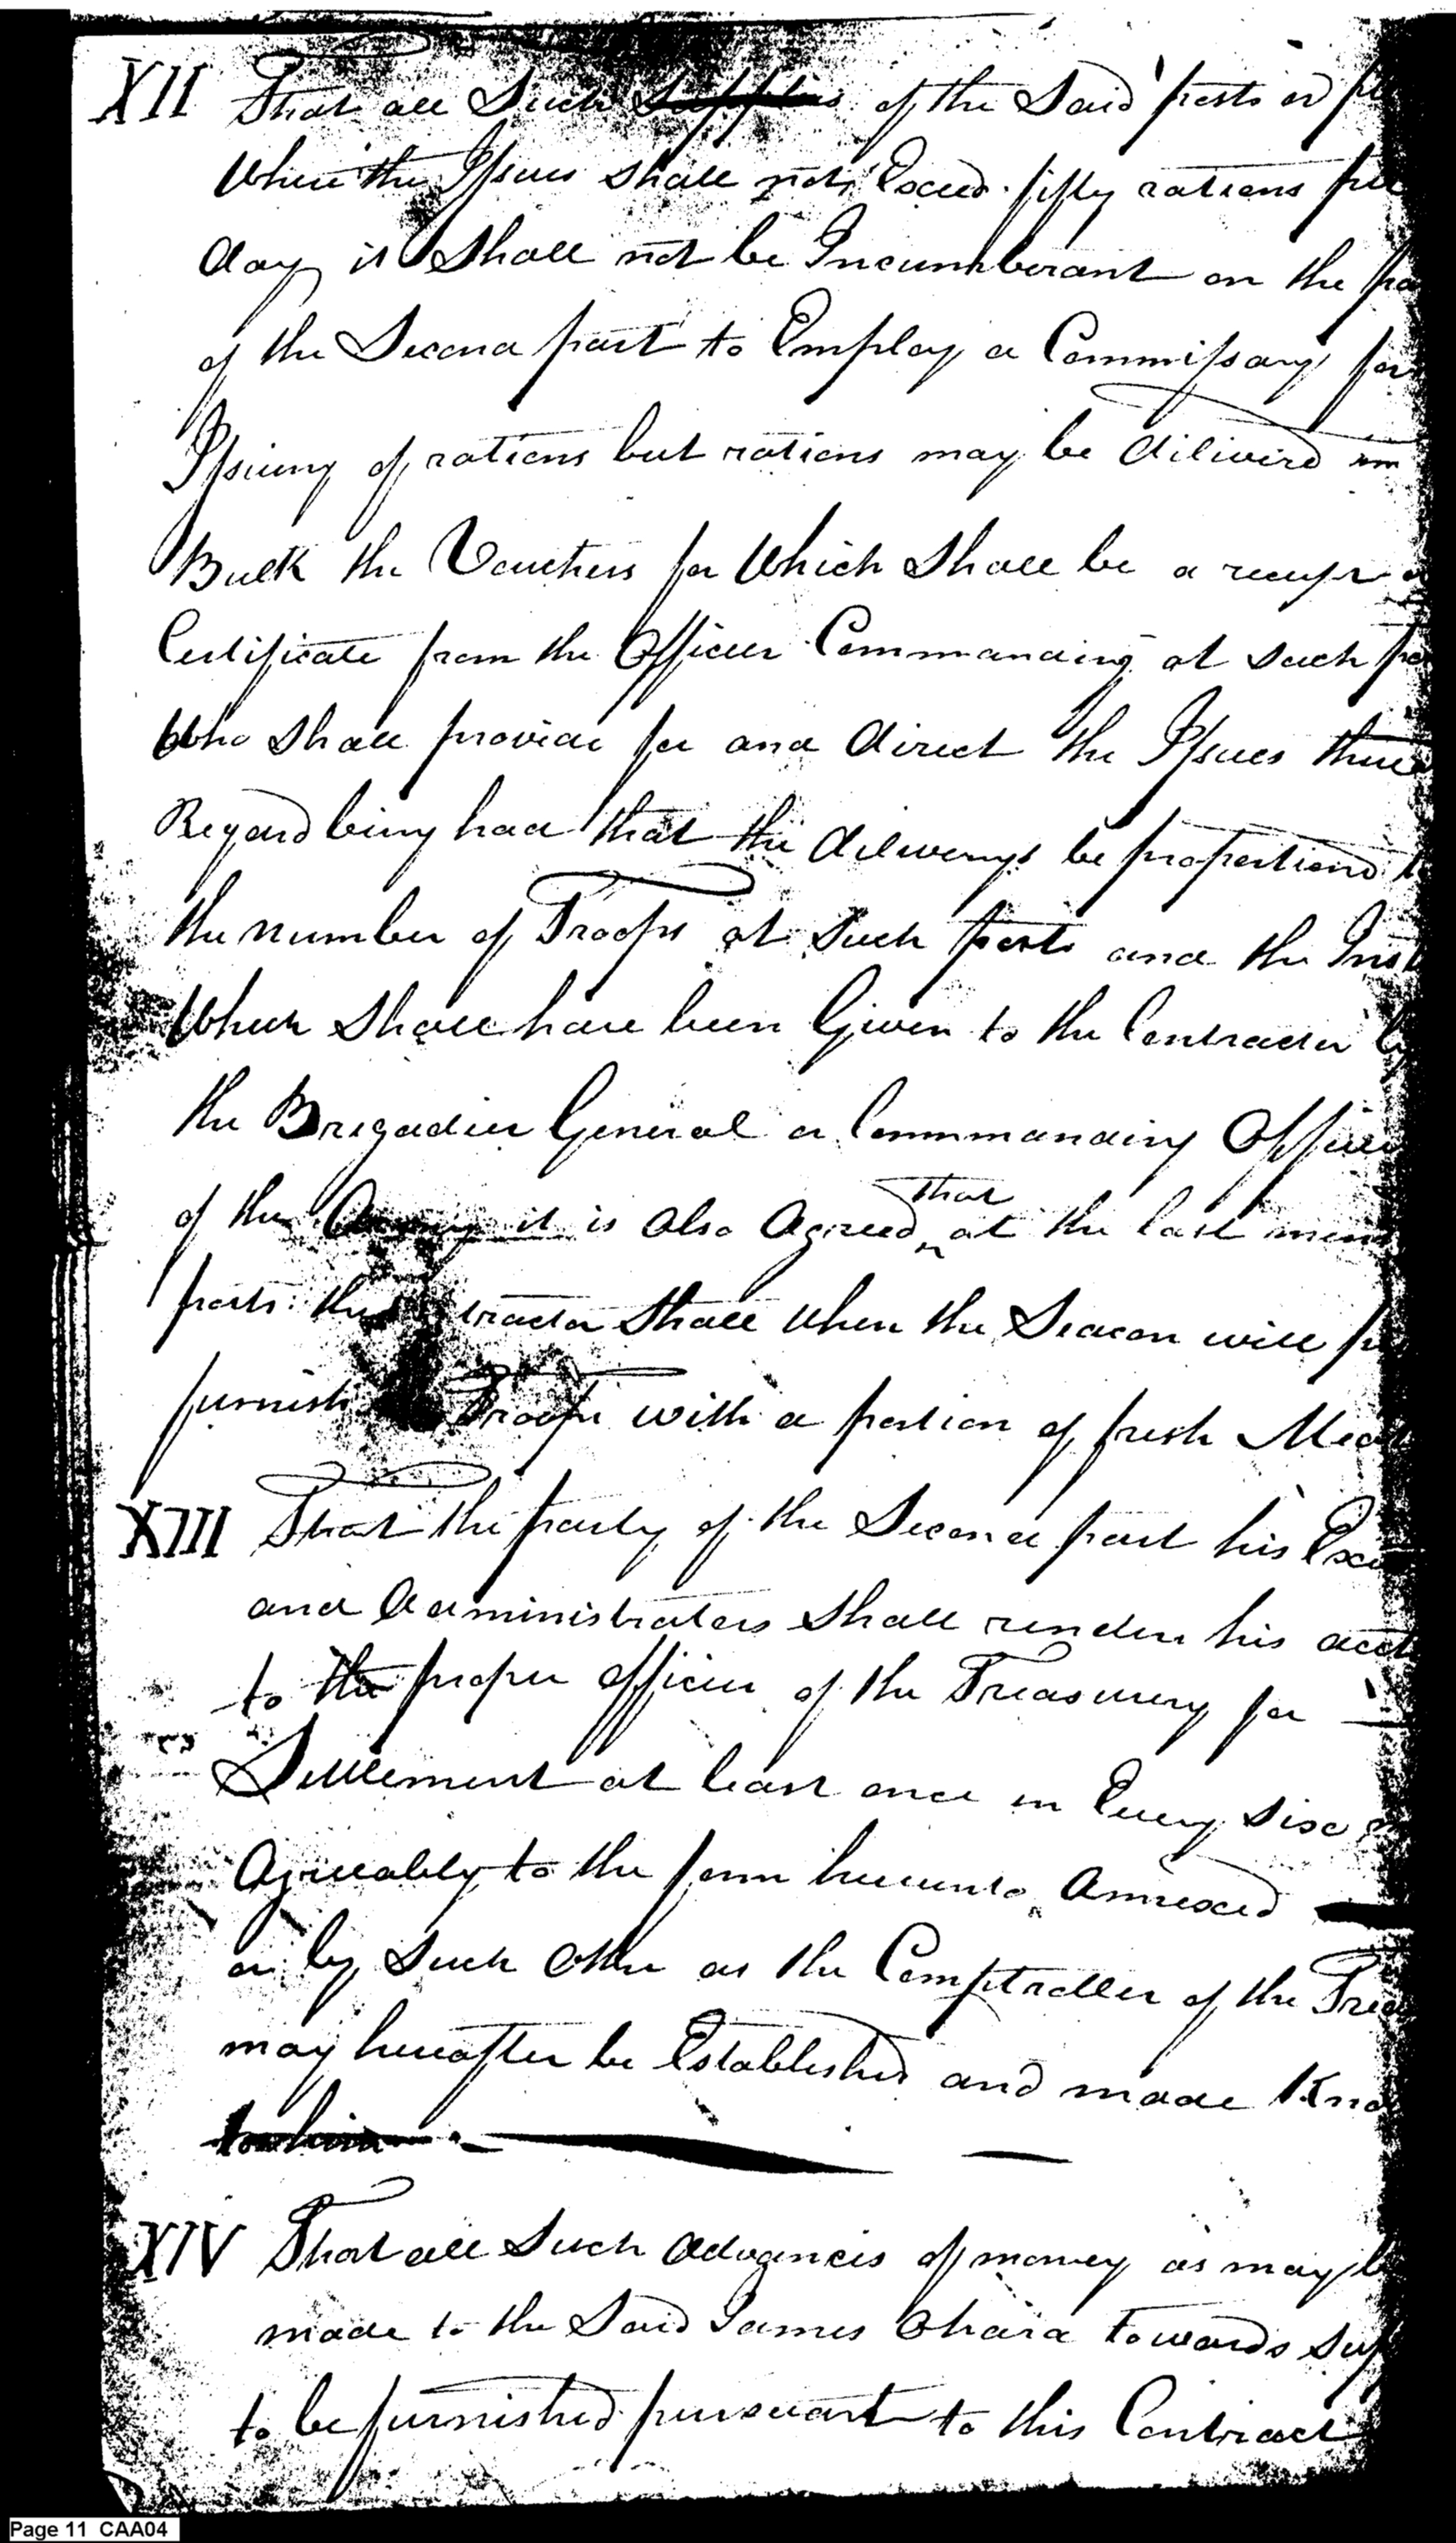 XII That all Such supplies of the Said posts or
Where the Issues shall not Exceed fifty rations per
day it Shall not be Incumberant on the
of the Second part to Employ a Commissary for
Issuing of rations but rations may be dilivird in
Bulk the Vouchers for Which Shall be a receipt
Certificate from the Officer Commanding at such
Who Shall provide for and direct the Issues
Regard being had that the diliverys be proportiond
the number of Troops at Such posts and the
Which Shall have been Given to the Contractor by
the Brigadier General or Commmanding Officer
of the Army it is also Agreed that at the last
posts the Shall when the Seacon will
furnish Troops with a portion of fresh
XIII That the party of the Second part his
and Administrators Shall render his acct
to the proper officer of the Treasurery for
Settlement at least once in Every Six
Agreeably to the form hereunto Annexed
or by Such other as the Comptroller of the
may hereafter be Established and made
to him
XIV That all Such Advances of money as may
made to the Said James Ohara Towards
to be furnished pursuant to this Contract
Page 11 CAA04